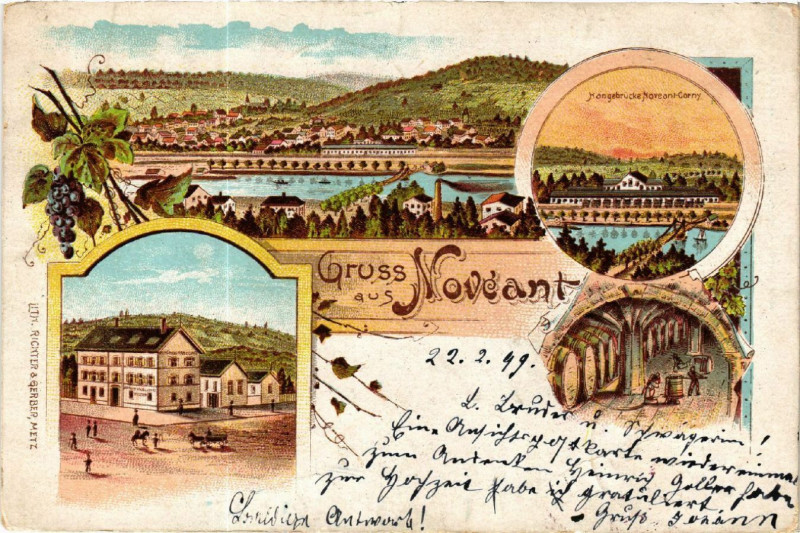 Hängebrücke Novéant-Corny.
Gruss
aus Novéant
LITH. RICHTER & GERBER, METZ
22. 2. 99.
L. Bruder u. Schwägerin!
Eine Ansichtspostkarte wiedereinmal
zum Andenken Heinrich
zur Hochzeit habe ich gratuliert
- Gruß Johann
Antwort!